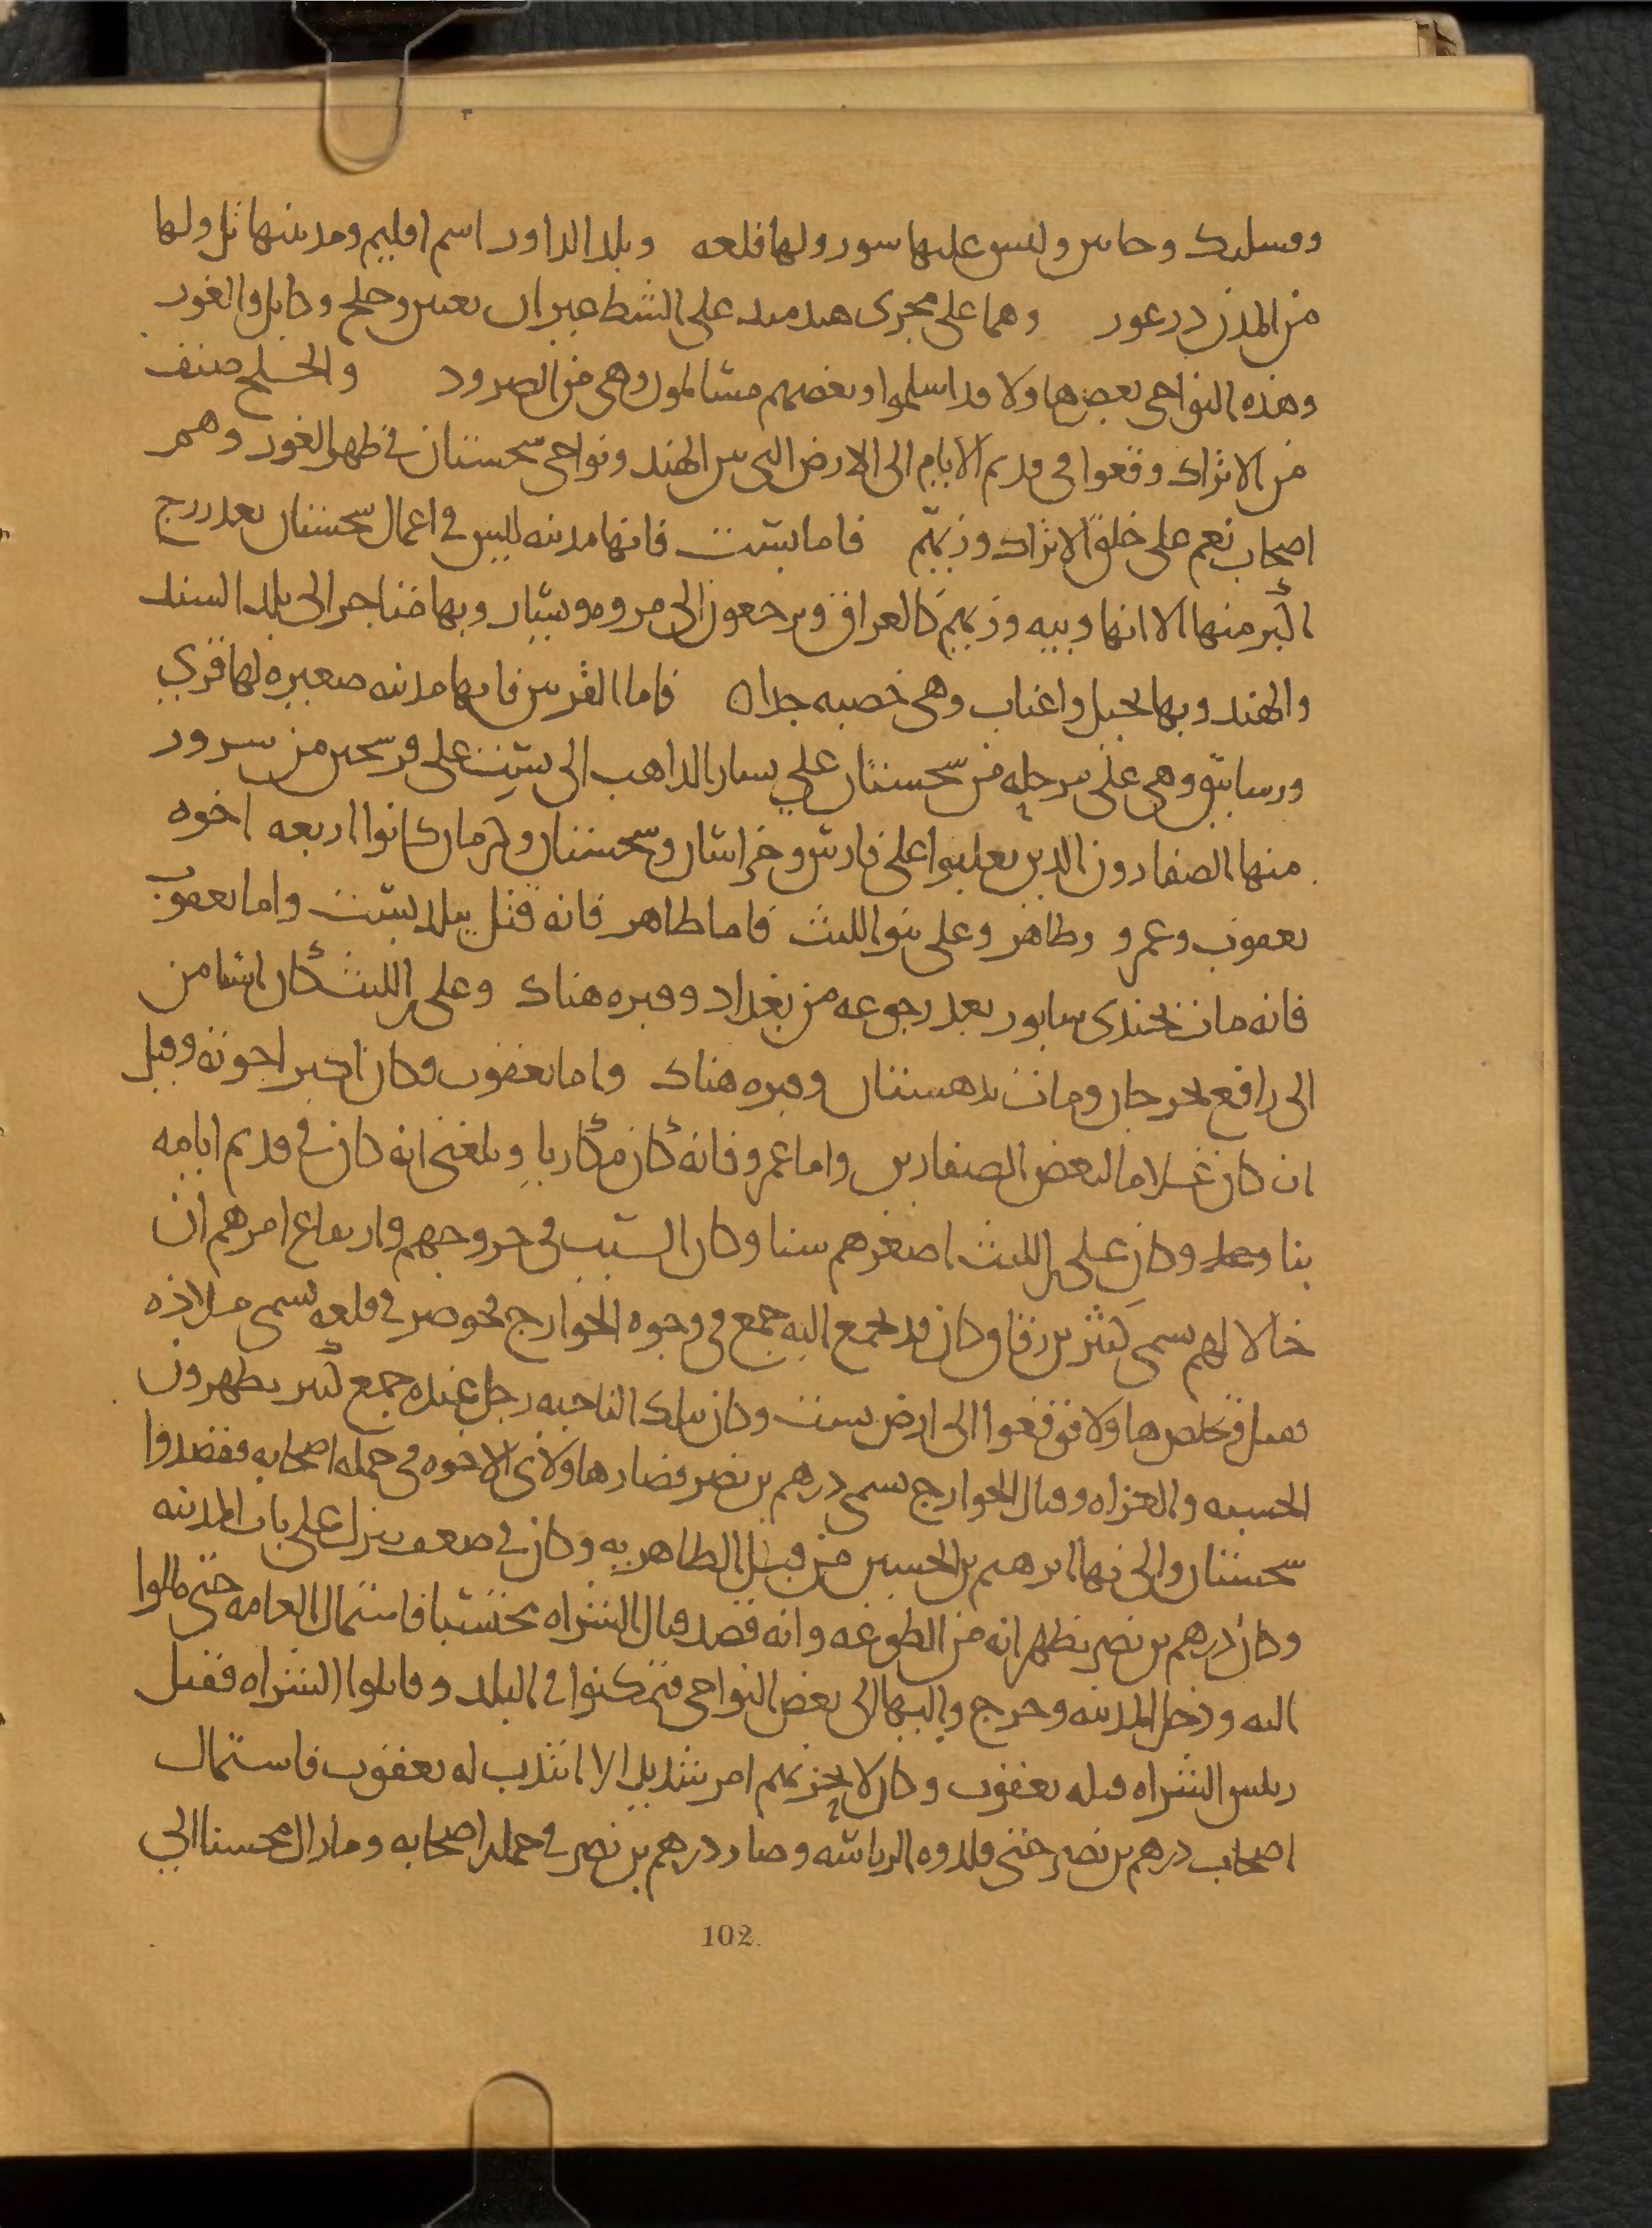 ومسلىك وحاس وليس عليها سور ولها قلعه وبلد الداور اسم اقليم ومدينتها تل ولها
من المدن درعور وهما على مجرى هيدميد على الشط عيران بعيىں وخلج وكابل والغور
وهذه النواحى بعض هاولا قد اسلموا وبعضهم مسالمون وهى من الصرود والخلج صنف
من الاتراك وقعوا فى قديم الايام الى الارض التى بين الهند ونواحى سجستان فى ظهر الغور وهم
اصحاب نعم على خلق الاتراك وزيهم فاما بست فانها مدينه ليس فى اعمال سجستان بعد زرنج
اكبر منها الا انها وبيه وزيهم كالعراق ويرجعون الى مروه ويسار وبها متاجر الى بلد السند
والهند وبها نخيل واعناب وهى خصبه جدا ه فاما القرنين فانها مدينه صغيره لها قري
ورساتيق وهى على مرحله من سجستان علي يسار الذاهب الى بست على فرسخين من سرور
منها الصفارون الذين تغلبوا على فارس وخراسان وسجستان وكرمان كانوا اربعه اخوه
يعقوب وعمرو وطاهر وعلى بنو الليث فاما طاهر فانه قتل ببلد بست واما يعقوب
فانه مات بجندى سابور بعد رجوعه من بغداد وقبره هناك وعلى بن الليث كان استامن
الى رافع بجرجان ومات بدهستان وقبره هناك واما يعقوب وكان اكبر اخوته وقيل
ان كان غلاما لبعض الصفارين واما عمرو فانه كان مكاريا وبلغنى انه كان فى قديم ايامه
بنا وكان على بن الليث اصغرهم سنا وكان السبب فى خروجهم وارتفاع امرهم ان
خالا لهم يسمى كثير بن رقاق وكان قد تجمع اليه جمع فى وجوه الخوارج فحوصر فى قلعه تسمى ملاذه
فقتل وتخلص هاولا فوقعوا الى ارض بست وكان بتلك الناحيه رجل عنده جمع كثير يظهرون
الحسبه والغزاه وقتال الخوارج يسمى درهم بن نصر فصار هاولاى الاخوه فى جمله اصحابه فقصدوا
سجستان والى بها ابرهيم بن الحسين من قبل الطاهريه وكان فى ضعف ينزل على باب المدينه
وكان درهم بن نصر يظهر انه من المطوعه وانه قصد قتال الشراه محتسبا فاستمال العامه حتى مالوا
اليه ودخل المدينه وخرج واليها الى بعض النواحى فتمكنوا فى البلد وقاتلوا الشراه فقتل
رئيس الشراه قتله يعقوب وكان لا يحزبهم امر شديد الا انتدب له يعقوب فاستمال
اصحاب درهم بن نصر حتى قلدوه الرياسه وصار درهم بن نصر فى جمله اصحابه ومازال محسنا الي
102